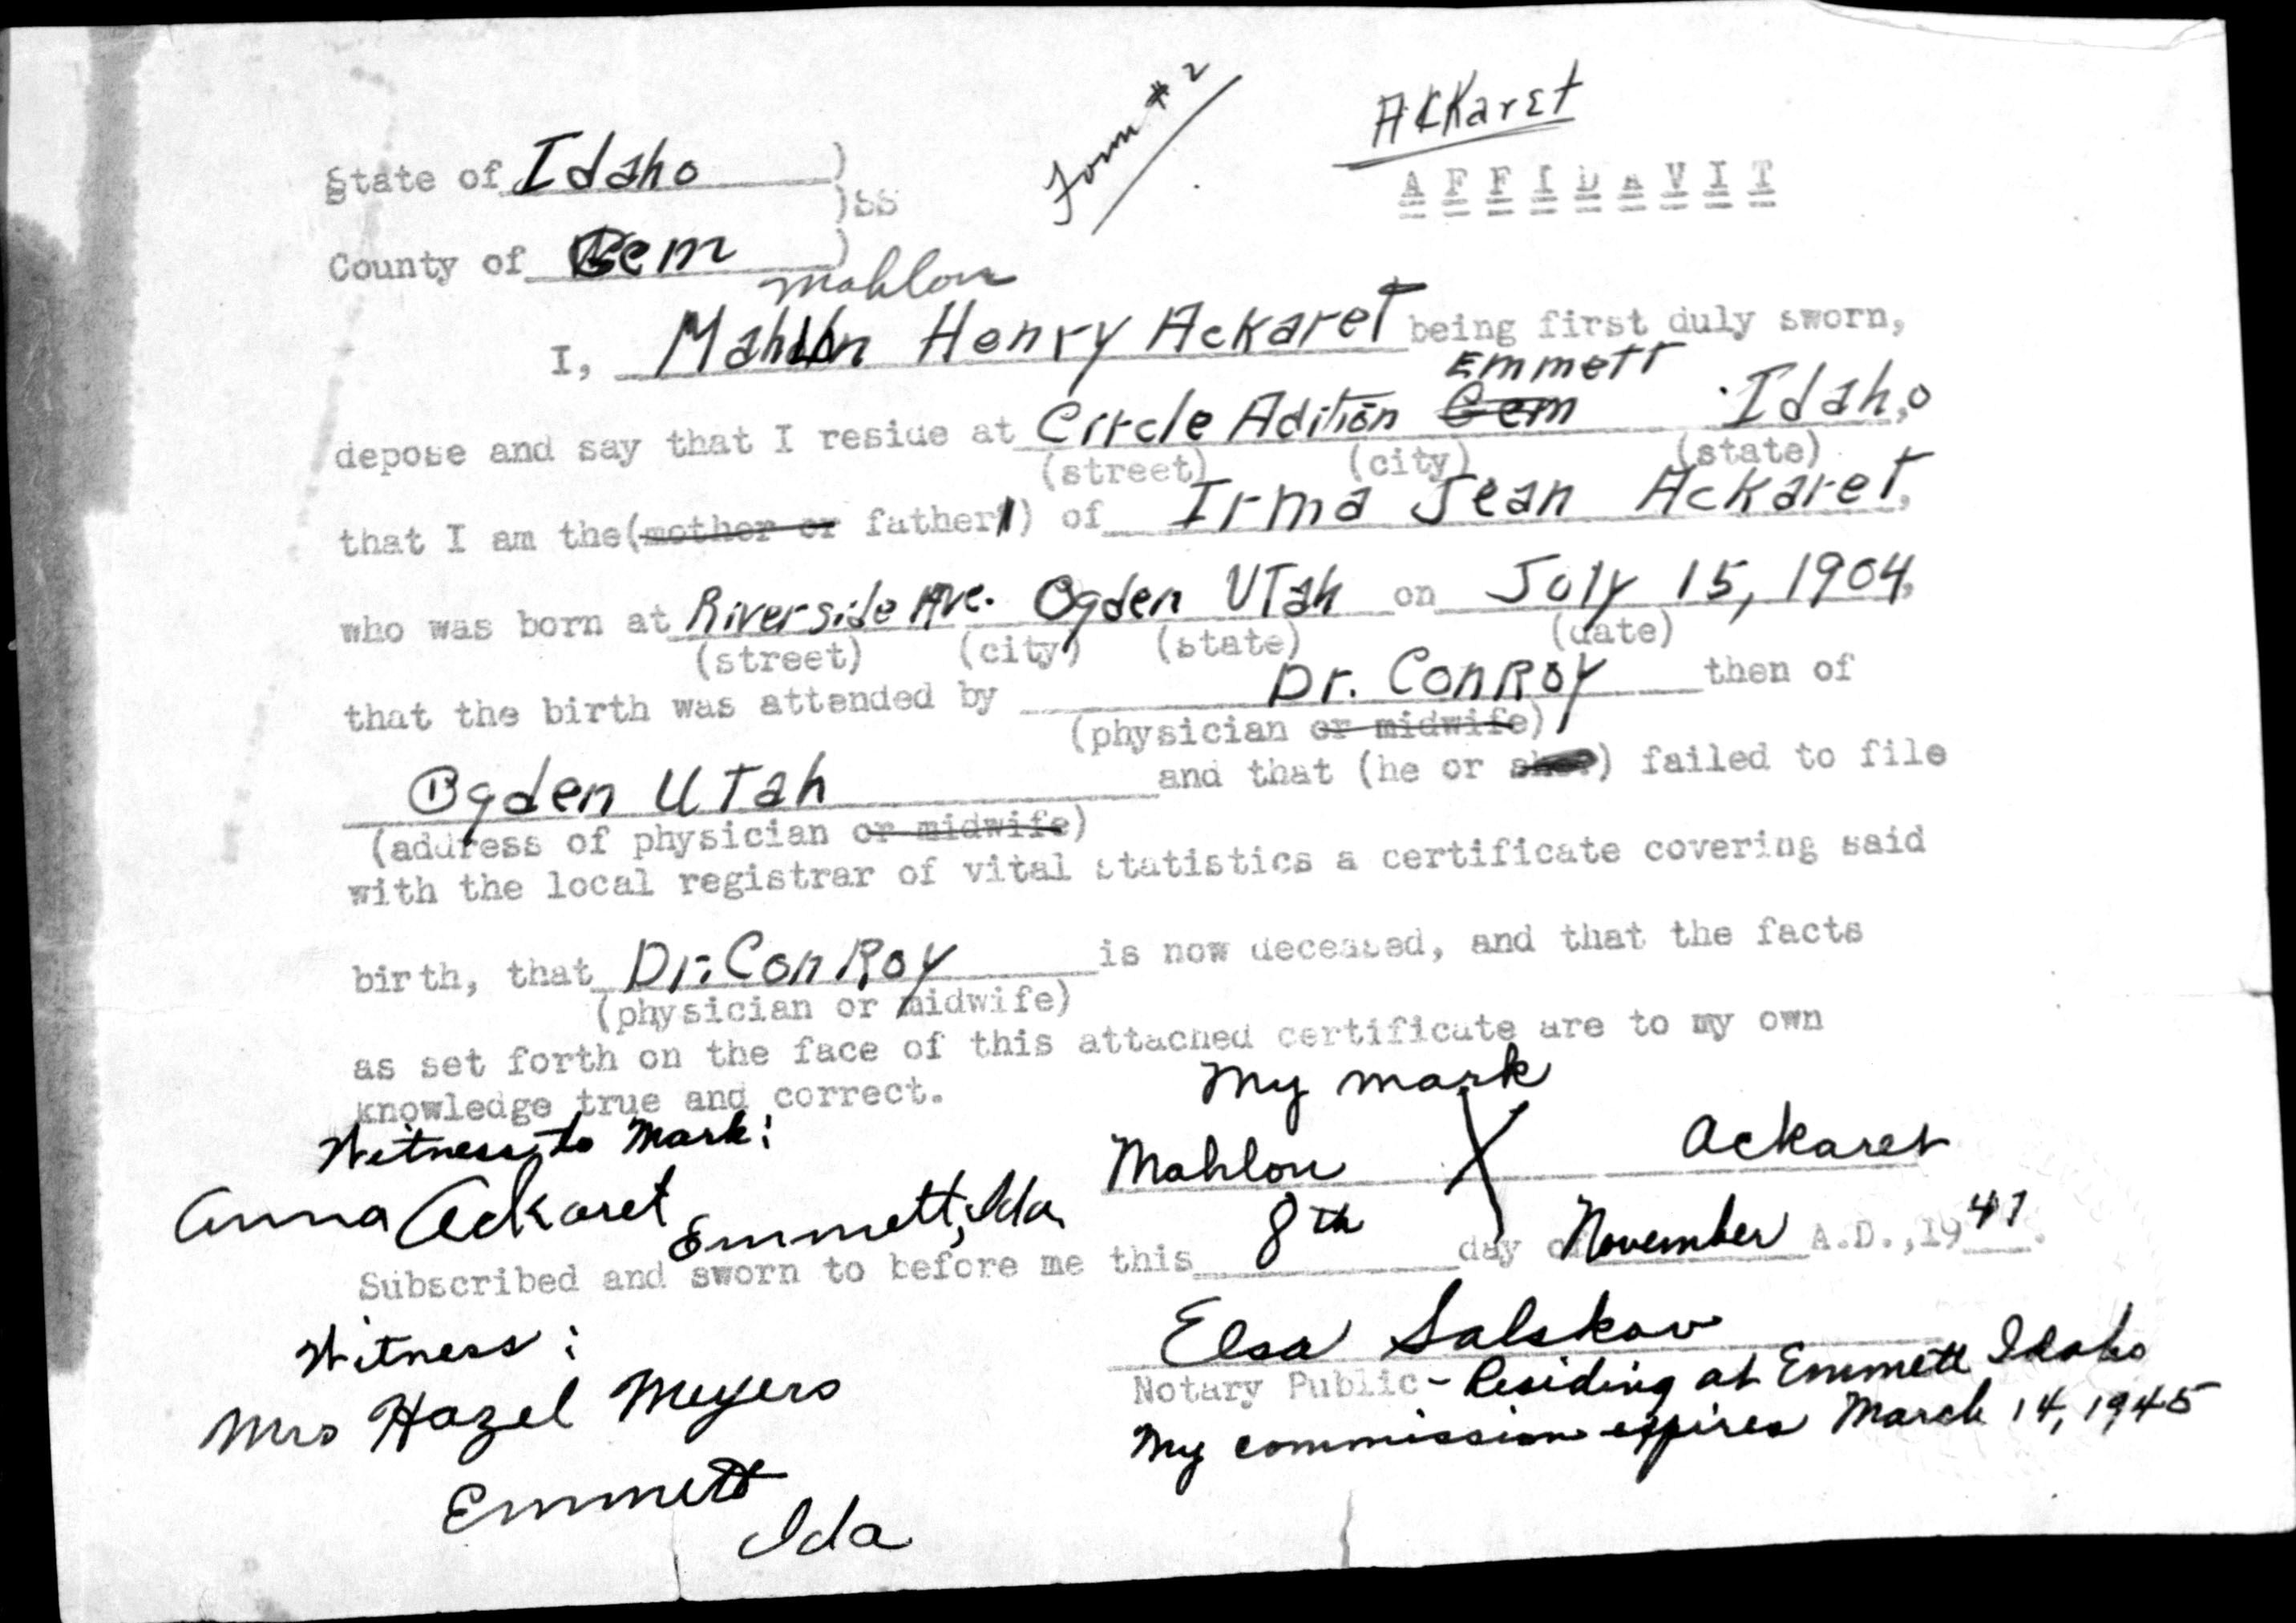 Form #2
Ackaret
AFFIDAVIT
State of Idaho )
)SS
County of Gem )
Mahlon
I, Mahlon Henry Ackaret being first duly sworn,
Emmett
depose and say that I reside at Circle Adition Gem Idaho,
(street) (city) (state)
that I am the (mother or father) of Irma Jean Ackaret,
who was born at Riverside Ave. Ogden Utah on July 15, 1904,
(street) (city) (state) (date)
that the birth was attended by Dr. ConRoy then of
(physician or midwife)
Ogden Utah and that (he or she) failed to file
(address of physician or midwife)
with the local registrar of vital statistics a certificate covering said
birth, that Dr. ConRoy is now deceased, and that the facts
(physician or midwife)
as set forth on the face of this attached certificate are to my own
knowledge true and correct.
My mark
Witness to Mark:
Mahlon X Ackaret
Anna Ackaret Emmett, Ida
Subscribed and sworn to before me this 8th day of November A.D., 1941.
Witness:
Elsa Salskov
Notary Public - Residing at Emmett Idaho
Mrs Hazel Meyers
My commission expires March 14, 1945
Emmett
Ida